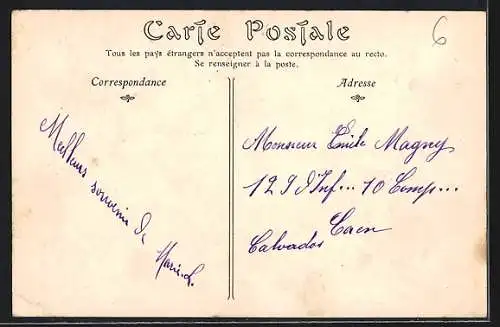 Carte Postale
6
Tous les pays étrangers n'acceptent pas la correspondance au recto.
Se renseigner à la poste.
Correspondance
Meilleurs souvenirs de
Marie. L.
Adresse
Monsieur Emile Magny
129 d'Inf... 10 Comp...
Caen
Calvados